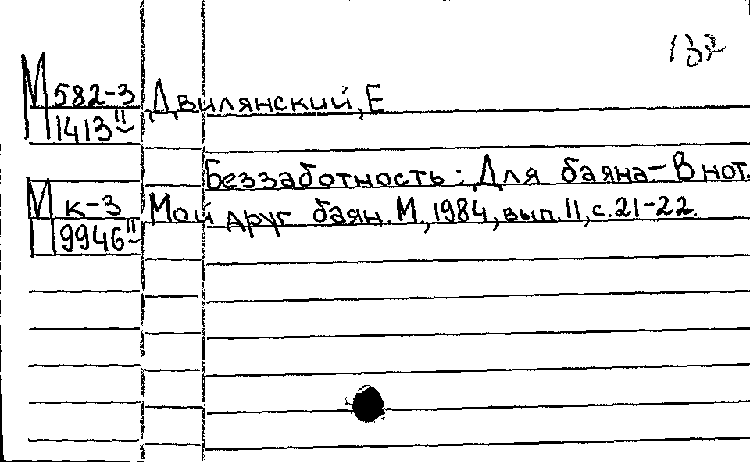 132
М 582-3 Двилянский, Е
1413 II
Беззаботность: Для баяна – В нот.
М к-3 Мой друг баян. М., 1984, вып. 11, с. 21-22.
9946 II